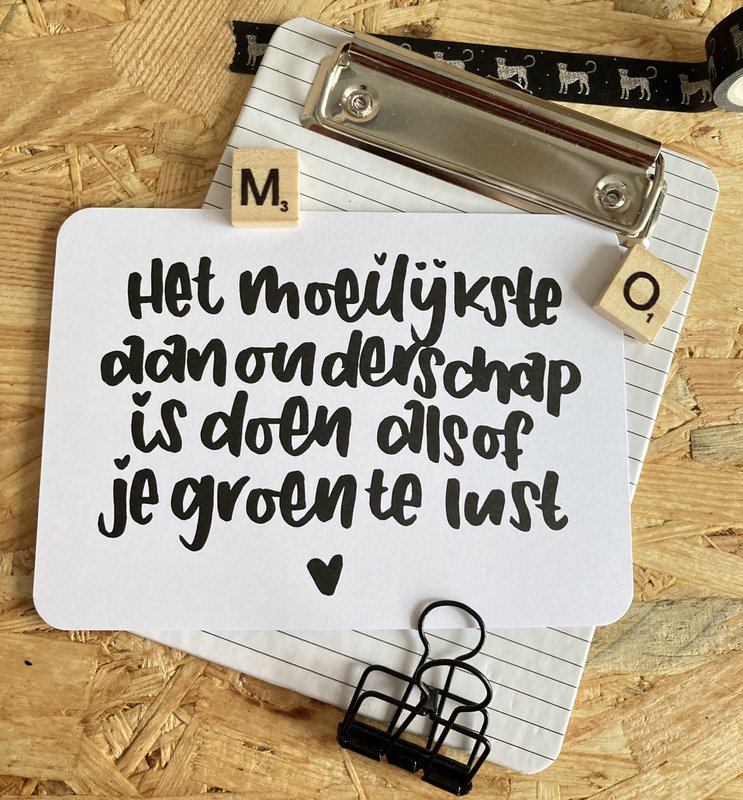 M3
O1
Het moeilijkste
aan ouderschap
is doen alsof
je groente lust